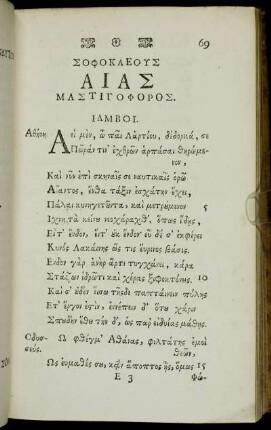 69
ΣΟΦΟΚΛΕΟΥΣ
ΑΙΑΣ
ΜΑΣΤΙΓΟΦΟΡΟΣ.
ΙΑΜΒΟΙ.
Ἀθήνη Ἀεὶ μὲν, ὦ παῖ Λαρτίου, δέδορκά, σε
Πεῖράν τιν' ἐχθρῶν ἁρπάσαι θηρώμε-
νον,
Καὶ νῦν ἐπὶ σκηναῖς σε ναυτικαῖς ὁρῶ
Αἴαντος, ἔνθα τάξιν ἐσχάτην ἔχει,
Πάλαι κυνηγετοῦντα, καὶ μετρούμενον 5
Ἴχνη τὰ κείνου νεοχάραχθ', ὅπως ἴδῃς,
Εἴτ' ἔνδον, εἴτ' οὐκ ἔνδον' εὖ δέ σ' ἐκφέρει
Κυνὸς Λακαίνης ὥς τις εὔρινος βάσις.
Ἔνδον γὰρ ἀνὴρ ἄρτι τυγχάνει, κάρα
Στάζων ἱδρῶτι καὶ χέρας ξιφοκτόνους. 10
Καί σ' οὐδὲν εἴσω τῆσδε παπταίνειν πύλης
Ἔτ' ἔργον ἐστὶν, ἐννέπειν δ' ὅτου χάριν
Σπουδὴν ἔθου τήν δ', ὡς παρ' εἰδυίας μάθῃς.
Οδυσ- Ὦ φθέγμ' Ἀθάνας, φιλτάτης ἐμοὶ
σεύς. θεῶν,
Ὡς εὐμαθές σου, κἂν ἄποπτος ᾖς, ὅμως 15
E 3 Φώ-